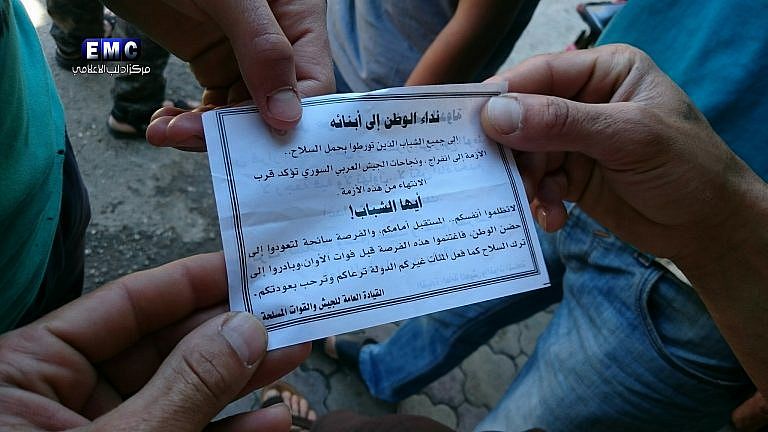 EMC
مركز ادلب الاعلامي
نداء الوطن إلى أبنائه
إلى جميع الشباب الذين تورطوا بحمل السلاح..
الأزمة إلى انفراج، ونجاحات الجيش العربي السوري تؤكد قرب
الانتهاء من هذه الأزمة.
أيها الشباب!
لاتظلموا أنفسكم.. المستقبل أمامكم، والفرصة سانحة لتعودوا إلى
حضن الوطن، فاغتنموا هذه الفرصة قبل فوات الأوان، وبادروا إلى
ترك السلاح كما فعل المئات غيركم الدولة ترعاكم وترحب بعودتكم.
القيادة العامة للجيش والقوات المسلحة